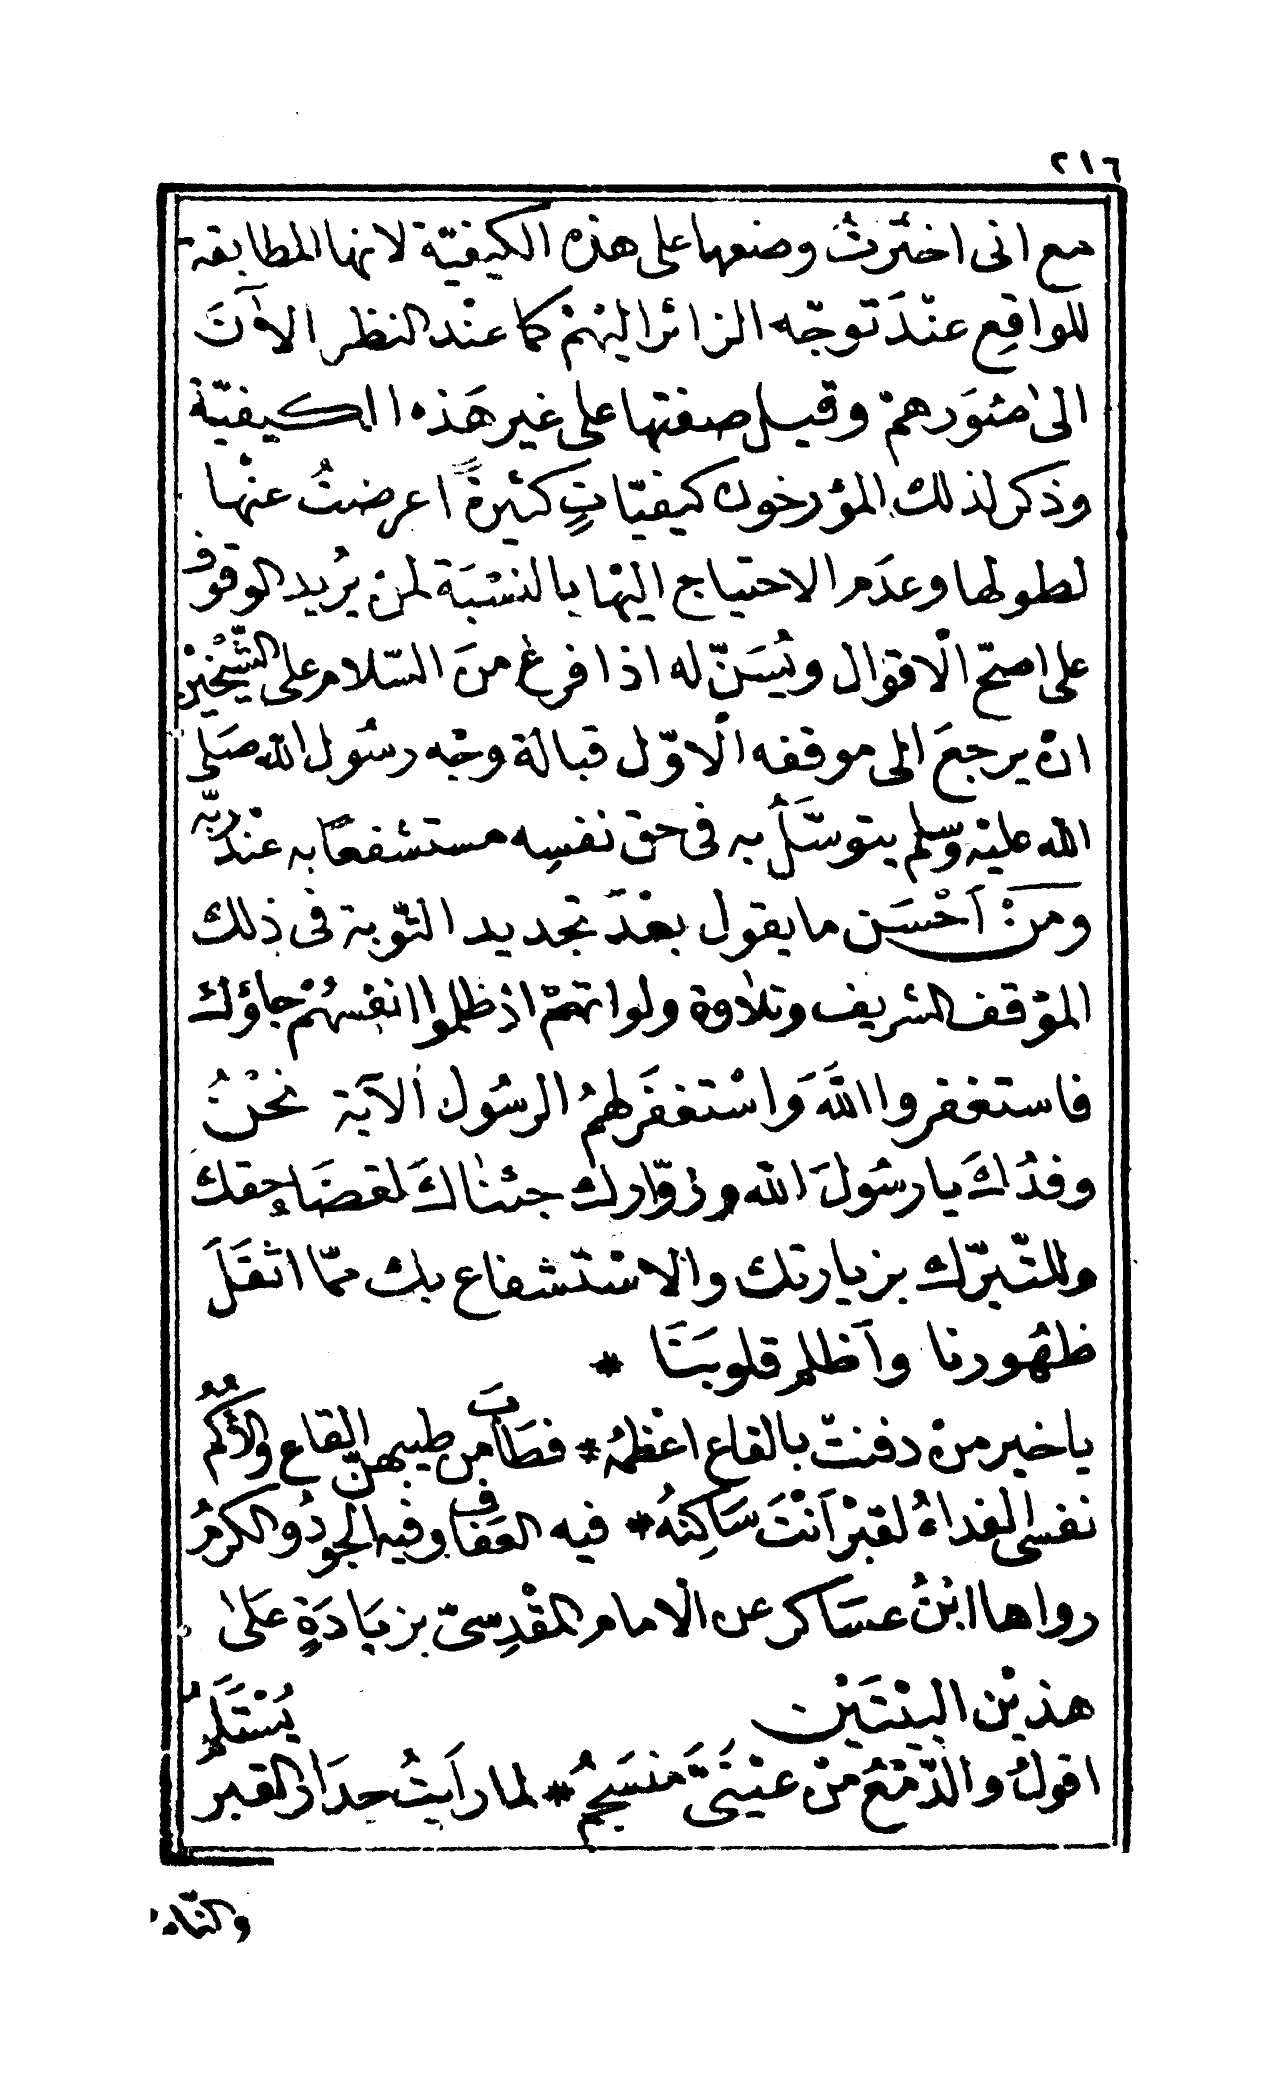 ٢١٦
مع انى اخترت وضعها على هذه الكيفيّة لانها المطابقة
للواقِع عنْدَ توجّه الزائر اليْهمْ كما عنْد النظر الاٰتَ
الىٰ صُوَرهمْ وقيل صفتها على غير هَذه الكيفيّة
وذكر لذلك المؤرخون كيفيّاتٍ كثيرةً اعرضتُ عنْها
لطولها وعدَم الاحتياج اليْها بالنسْبَة لمنْ يُريد الوقوف
على اصحّ الْاقوال ويُسَنّ له اذا فرغ منَ السّلام على الشّيْخيْن
انْ يرجعَ الى موقفه الْاوّل قبالة وجْه رسُول الله صَلّى
الله عليْه وسّلم يتوسَّلُ به فى حق نفسِه مستشفعًا به عنْد ربّه
ومنْ اَحْسَن ما يقول بعْدَ تجديد التّوبة فى ذلك
المؤقف الشريف وتلاوة ولو انّهمْ اذ ظلموا انفسهُمْ جاؤك
فاستغفروا اللّهَ وَاسْتغفَر لهمُ الرسُول الآية نحْنُ
وفدُكَ يا رسُولَ الله وزوّارك جئناكَ لقضَا حقك
وللتّبرّك بزيارتك والاسْتشفاع بك ممّا اثقَلَ
ظهُورنا واَظلم قلوبَنَا *
يا خير منْ دفنتْ بالقاع اعْظمُهُ * فطَابَ من طيبهنّ القاع والأكُمُ
نفسى الفداءُ لقبْر اَنْتَ سَاكِنُهُ * فيه العَفاف وفيه الجودُ والكرمُ
رواها ابْنُ عسَاكر عن الْامام المقْدِسىّ بزيَادَةٍ عَلىٰ
هذيْن البيْتَيْن
اقولُ والدّمْعُ منْ عيْنَىَّ منسَجِمُ * لما رَاَيتُ جدَار القبر يُسْتَلَمُ
والنّاس